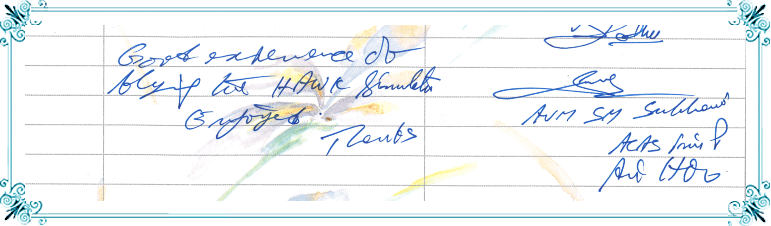 Good experience of
flying the HAWK Simulator
Enjoyed.
Thanks
AVM SM Subhani
ACAS
Air HQ